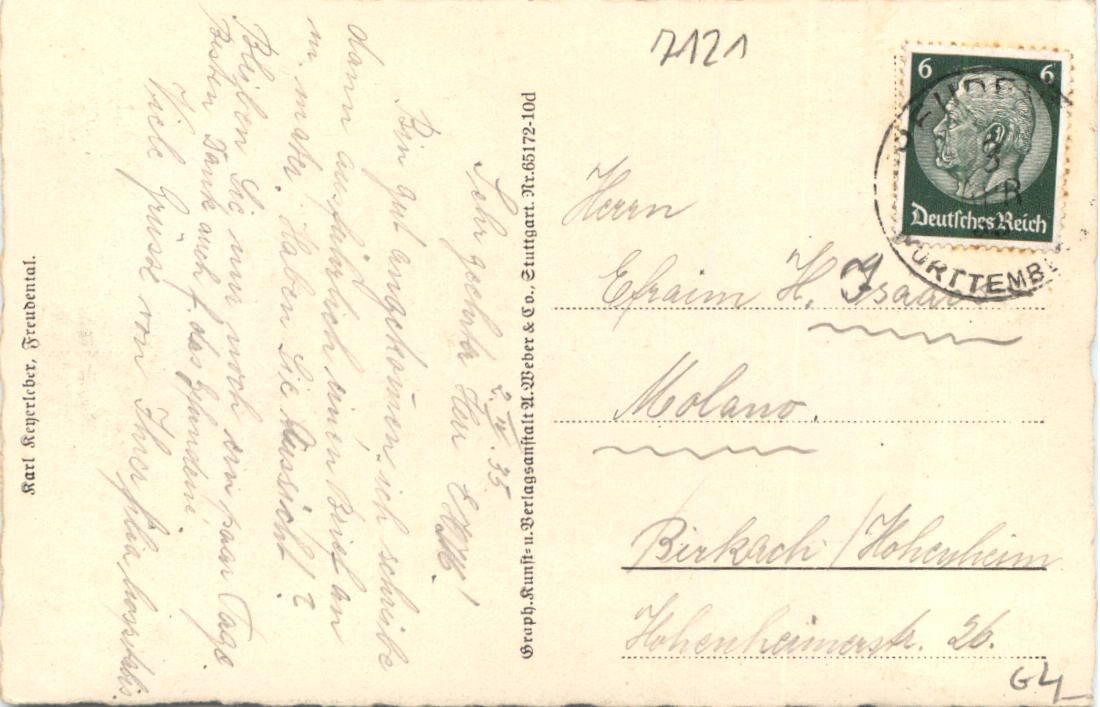 7121
6 6
Deutsches Reich
FREUDENTAL
WÜRTTEMB
2. IV. 35
Sehr geehrter Herr
Bin gut angekommen, ich schreibe
dann ausführlich einen Brief an
m. mater. Haben Sie Aussicht!?
Bleiben Sie nur noch ein paar Tage.
Besten Dank auch f. das
Viele Grüsse von Ihrer filia hospitalis.
Karl Keyerleber, Freudental.
Graph. Kunst= u. Verlagsanstalt A. Weber & Co., Stuttgart. Nr. 65172-10d
Herrn
Efraim H. Isaac
Molano.
Birkach / Hohenheim
Hohenheimerstr. 26.
G4